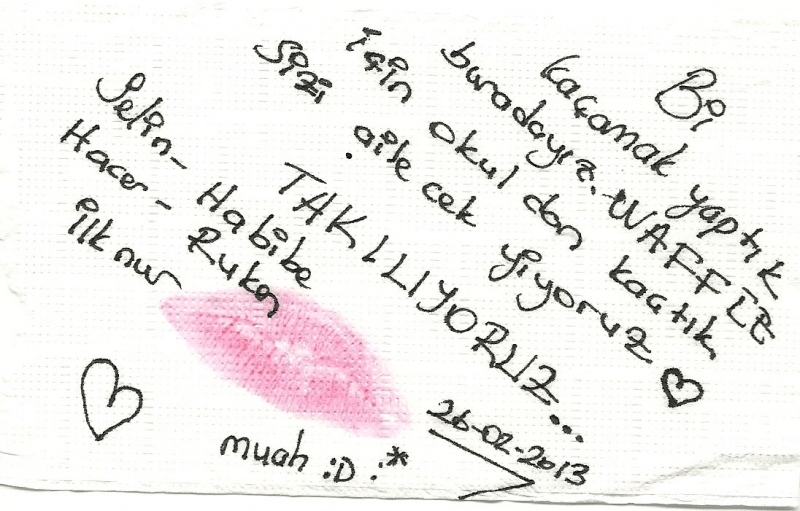 Bi
kaçamak yaptık
buradayız. WAFFLE
için okuldan kaçtık
Sizi ailecek yiyoruz ♥
TAKILIYORUZ...
Selin - Habibe
Hacer - Ruken
ilknur
26-02-2013
muah :D :*